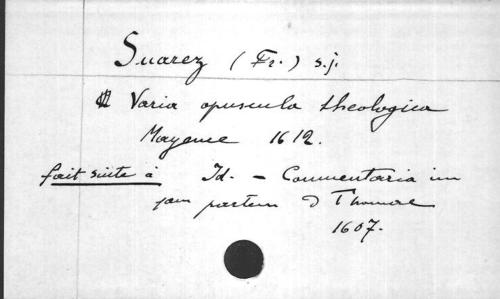 Suarez (Fr.) s.j.
Varia opuscula theologica
Mayence 1612.
fait suite à Id. - Commentaria in
partem D Thomae
1607.